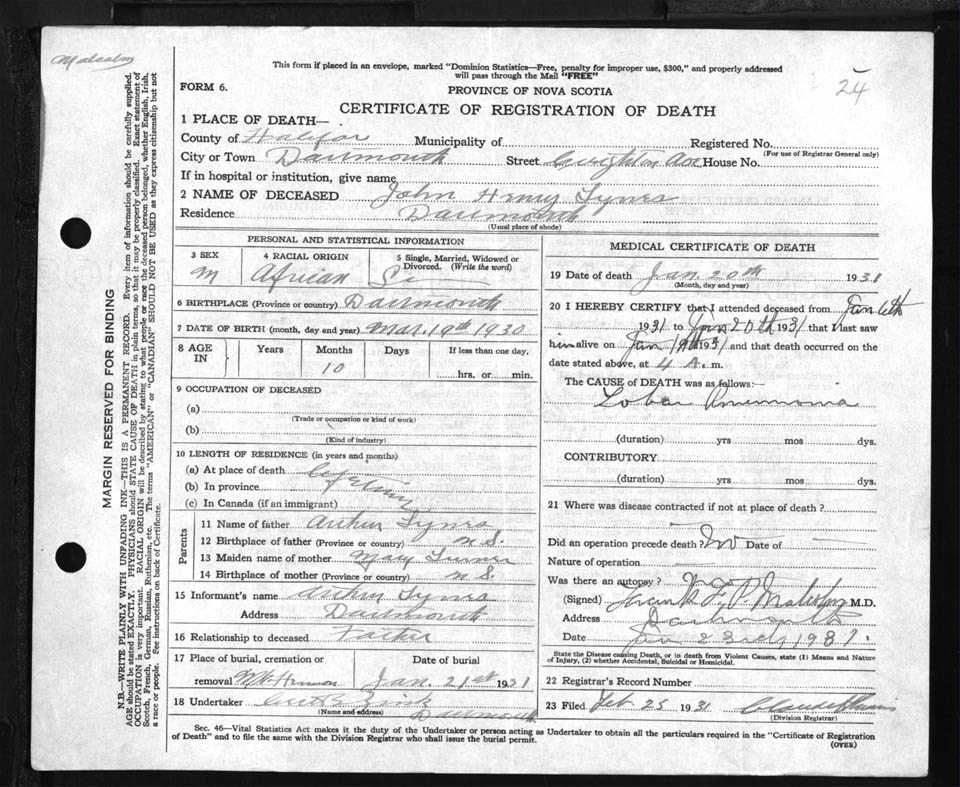 Malcolm
24
This form if placed in an envelope, marked "Dominion Statistics—Free, penalty for improper use, $300," and properly addressed
will pass through the Mail "FREE"
FORM 6.
PROVINCE OF NOVA SCOTIA
CERTIFICATE OF REGISTRATION OF DEATH
1 PLACE OF DEATH—
County of Halifax Municipality of Registered No.
(For use of Registrar General only)
City or Town Dartmouth Street Ave House No.
If in hospital or institution, give name
2 NAME OF DECEASED John Henry Tynes
Residence Dartmouth
(Usual place of abode)
PERSONAL AND STATISTICAL INFORMATION
3 SEX 4 RACIAL ORIGIN 5 Single, Married, Widowed or
Divorced. (Write the word)
M African S
6 BIRTHPLACE (Province or country) Dartmouth
7 DATE OF BIRTH (month, day and year) Mar. 19th 1930
8 AGE IN Years Months Days If less than one day,
10
hrs. or min.
9 OCCUPATION OF DECEASED
(a)
(Trade or occupation or kind of work)
(b)
(Kind of industry)
10 LENGTH OF RESIDENCE (in years and months)
(a) At place of death
(b) In province Lifetime
(c) In Canada (if an immigrant)
Parents
11 Name of father Arthur Tynes
12 Birthplace of father (Province or country) N.S.
13 Maiden name of mother Mary
14 Birthplace of mother (Province or country) N.S.
15 Informant's name Arthur Tynes
Address Dartmouth
16 Relationship to deceased Father
17 Place of burial, cremation or Date of burial
removal Mt. Hermon Jan. 21st 1931
18 Undertaker
(Name and address)
Dartmouth
MEDICAL CERTIFICATE OF DEATH
19 Date of death Jan. 20th 1931
(Month, day and year)
20 I HEREBY CERTIFY that I attended deceased from Jan 6th
1931 to Jan 20th 1931 that I last saw
him alive on Jan 19th 1931 and that death occurred on the
date stated above, at 4 A. m.
The CAUSE OF DEATH was as follows:—
Lobar Pneumonia
(duration) yrs mos dys.
CONTRIBUTORY
(duration) yrs mos dys.
21 Where was disease contracted if not at place of death?
Did an operation precede death? No Date of —
Nature of operation —
Was there an autopsy? No
(Signed) M.D.
Address Dartmouth
Date Jan 23rd, 1931
State the Disease causing Death, or in death from Violent Causes, state (1) Means and Nature
of Injury, (2) whether Accidental, Suicidal or Homicidal.
22 Registrar's Record Number
23 Filed Feb 25 1931
(Division Registrar)
Sec. 46—Vital Statistics Act makes it the duty of the Undertaker or person acting as Undertaker to obtain all the particulars required in the "Certificate of Registration
of Death" and to file the same with the Division Registrar who shall issue the burial permit.
(OVER)
MARGIN RESERVED FOR BINDING
N.B.—WRITE PLAINLY WITH UNFADING INK—THIS IS A PERMANENT RECORD. Every item of information should be carefully supplied.
AGE should be stated EXACTLY. PHYSICIANS should STATE CAUSE OF DEATH in plain terms, so that it may be properly classified. Exact statement of
OCCUPATION is very important. RACIAL ORIGIN will be described by stating to what people or race the deceased person belonged, whether English, Irish,
Scotch, French, German, Russian, Ruthenian, etc. The terms "AMERICAN" or "CANADIAN" SHOULD NOT BE USED as they express citizenship but not
a race or people. See instructions on back of Certificate.